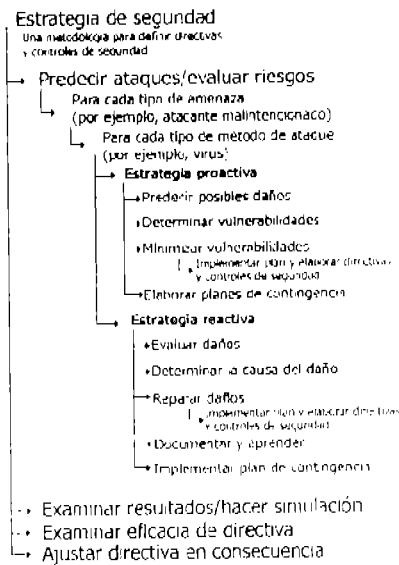 Estrategia de seguridad
Una metodología para definir directivas
y controles de seguridad
Predecir ataques/evaluar riesgos
Para cada tipo de amenaza
(por ejemplo, atacante malintencionaco)
Para cada tipo de método de ataque
(por ejemplo, virus)
Estrategia proactiva
Predecir posibles daños
Determinar vulnerabilidades
Minimizar vulnerabilidades
Implementar plan y elaborar directivas
y controles de seguridad
Elaborar planes de contingencia
Estrategia reactiva
Evaluar daños
Determinar la causa del daño
Reparar daños
Implementar plan y elaborar directivas
y controles de seguridad
Documentar y aprender
Implementar plan de contingencia
Examinar resultados/hacer simulación
Examinar eficacia de directiva
Ajustar directiva en consecuencia